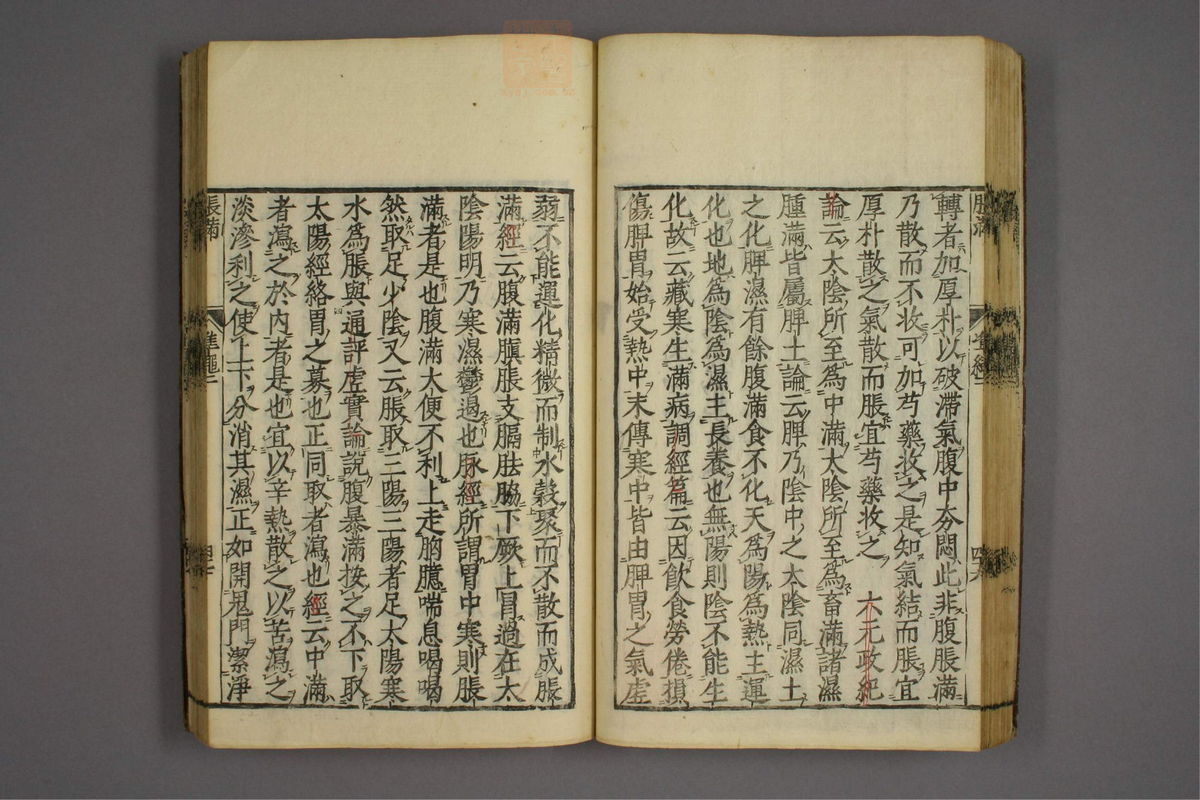 轉者加厚朴以破滯氣腹中夯悶此非腹脹滿
乃散而不收可加芍藥收之是知氣結而脹宜
厚朴散之氣散而脹宜芍藥收之 六元政紀
論云太陰所至為中滿太陰所至為畜滿諸濕
腫滿皆屬脾土論云脾乃陰中之太陰同濕土
之化脾濕有餘腹滿食不化天為陽為熱主運
化也地為陰為濕主長養也無陽則陰不能生
化故云藏寒生滿病調經篇云因飲食勞倦損
傷脾胃始受熱中末傳寒中皆由脾胃之氣虛
弱不能運化精微而制水穀聚而不散而成脹
滿經云腹滿䐜脹支膈胠脇下厥上冒過在太
陰陽明乃寒濕鬱遏也脉經所謂胃中寒則脹
滿者是也腹滿大便不利上走胸臆喘息喝喝
然取足少陰又云脹取三陽三陽者足太陽寒
水為脹與通評虛實論說腹暴滿按之不下取
太陽經絡胃之募也正同取者瀉也經云中滿
者瀉之於内者是也宜以辛熱散之以苦瀉之
淡滲利之使上下分消其濕正如開鬼門潔淨